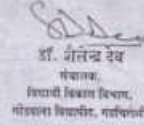 डॉ. शैलेन्द्र देव
संचालक,
विद्यार्थी विकास विभाग,
गोंडवाना विद्यापीठ, गडचिरोली